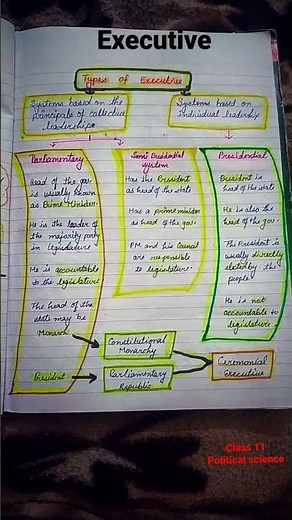 Executive
Types of Executive
Systems based on the
principals of collective
leadership
Systems based on
individual leadership
Parliamentary
Head of the gov.
is usually known
as Prime Minister.
He is the leader of
the majority party
in legislature
He is accountable
to the legislature
The head of the
state may be
Monarch
President
Semi Presidential
System
Has the President
as head of the state
Has a prime minister
as head of the gov.
PM and his Council
are responsible
to legislature.
Presidential
President is
head of the state
He is also the
head of the gov.
The President is
usually directly
elected by the
people
He is not
accountable to
legislature
Constitutional
Monarchy
Parliamentary
Republic
Ceremonial
Executive
Class 11
Political science